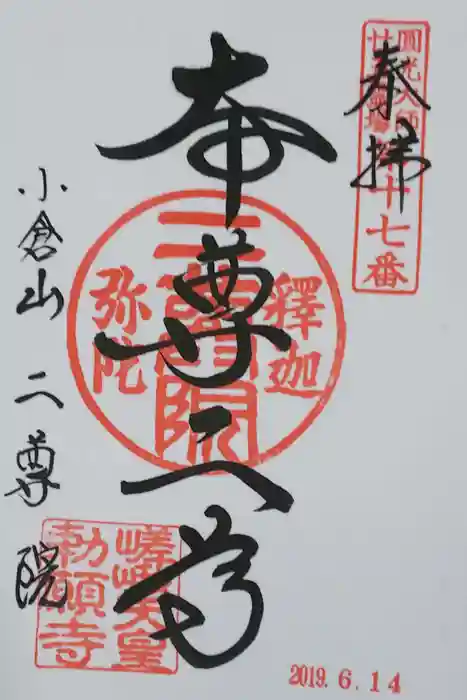 圓光大師
廿五霊場第十七番
奉拝
本尊二尊
釋迦
二尊院
弥陀
小倉山 二尊院
嵯峨天皇
勅願寺
2019.6.14